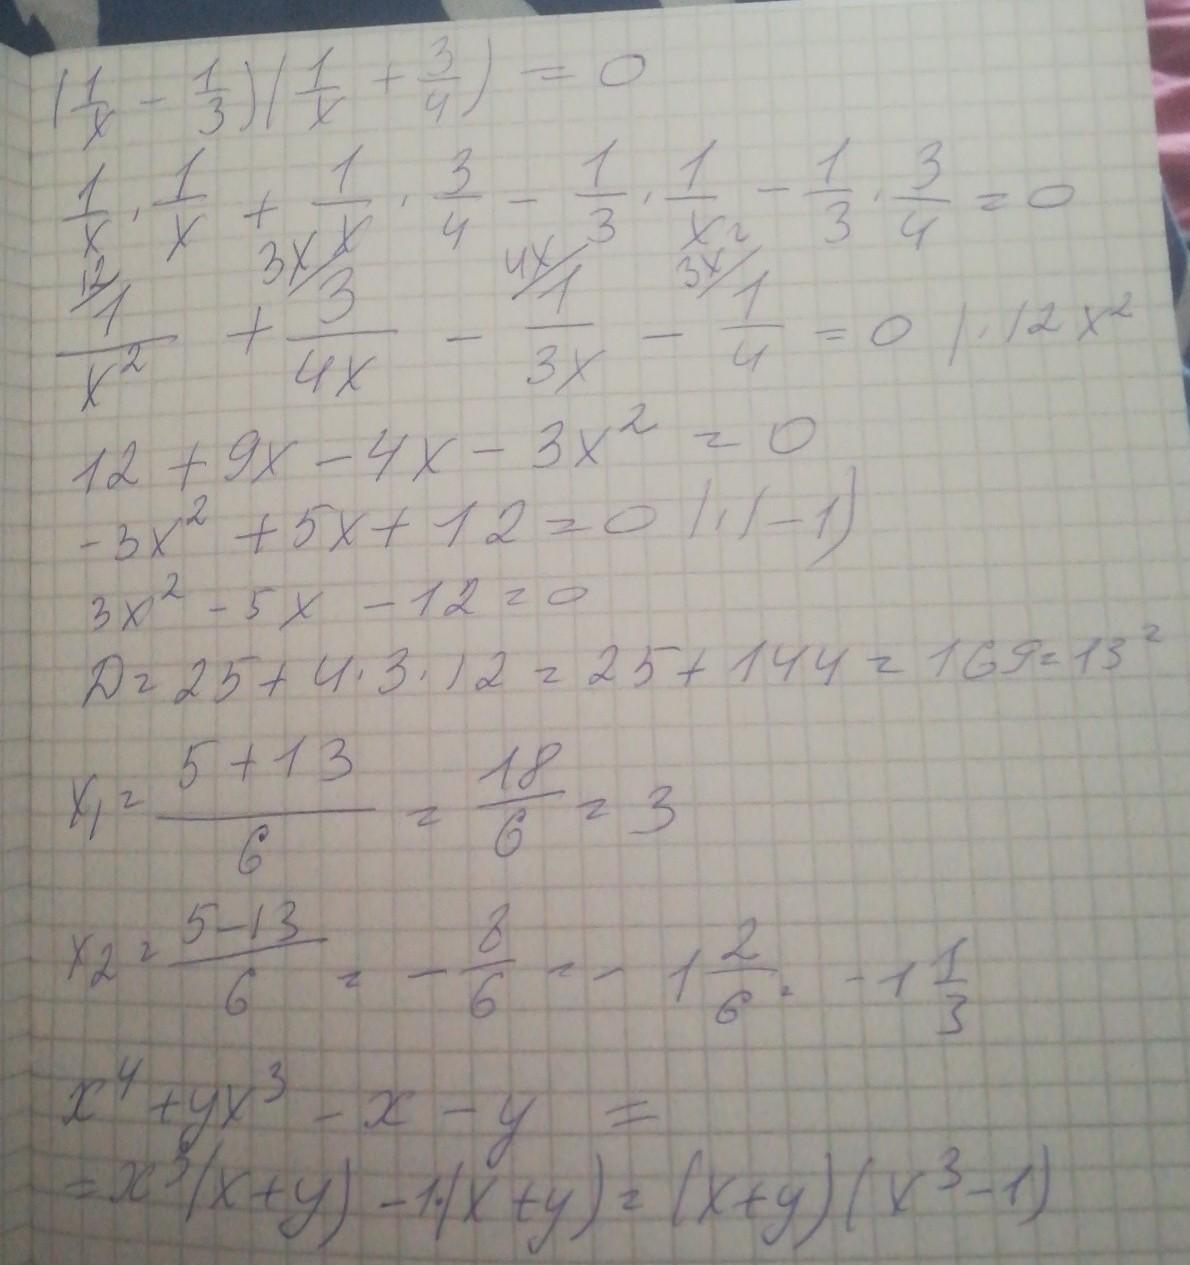 (1/x - 1/3)(1/x + 3/4) = 0
1/x · 1/x + 1/x · 3/4 - 1/3 · 1/x - 1/3 · 3/4 = 0
12/ 3x/ 4x/ 3x²/
1/x² + 3/4x - 1/3x - 1/4 = 0 |·12x²
12 + 9x - 4x - 3x² = 0
-3x² + 5x + 12 = 0 |·(-1)
3x² - 5x - 12 = 0
D = 25 + 4·3·12 = 25 + 144 = 169 = 13²
x₁ = (5+13)/6 = 18/6 = 3
x₂ = (5-13)/6 = -8/6 = -1 2/6 = -1 1/3
x⁴ + yx³ - x - y =
= x³(x+y) - 1·(x+y) = (x+y)(x³-1)